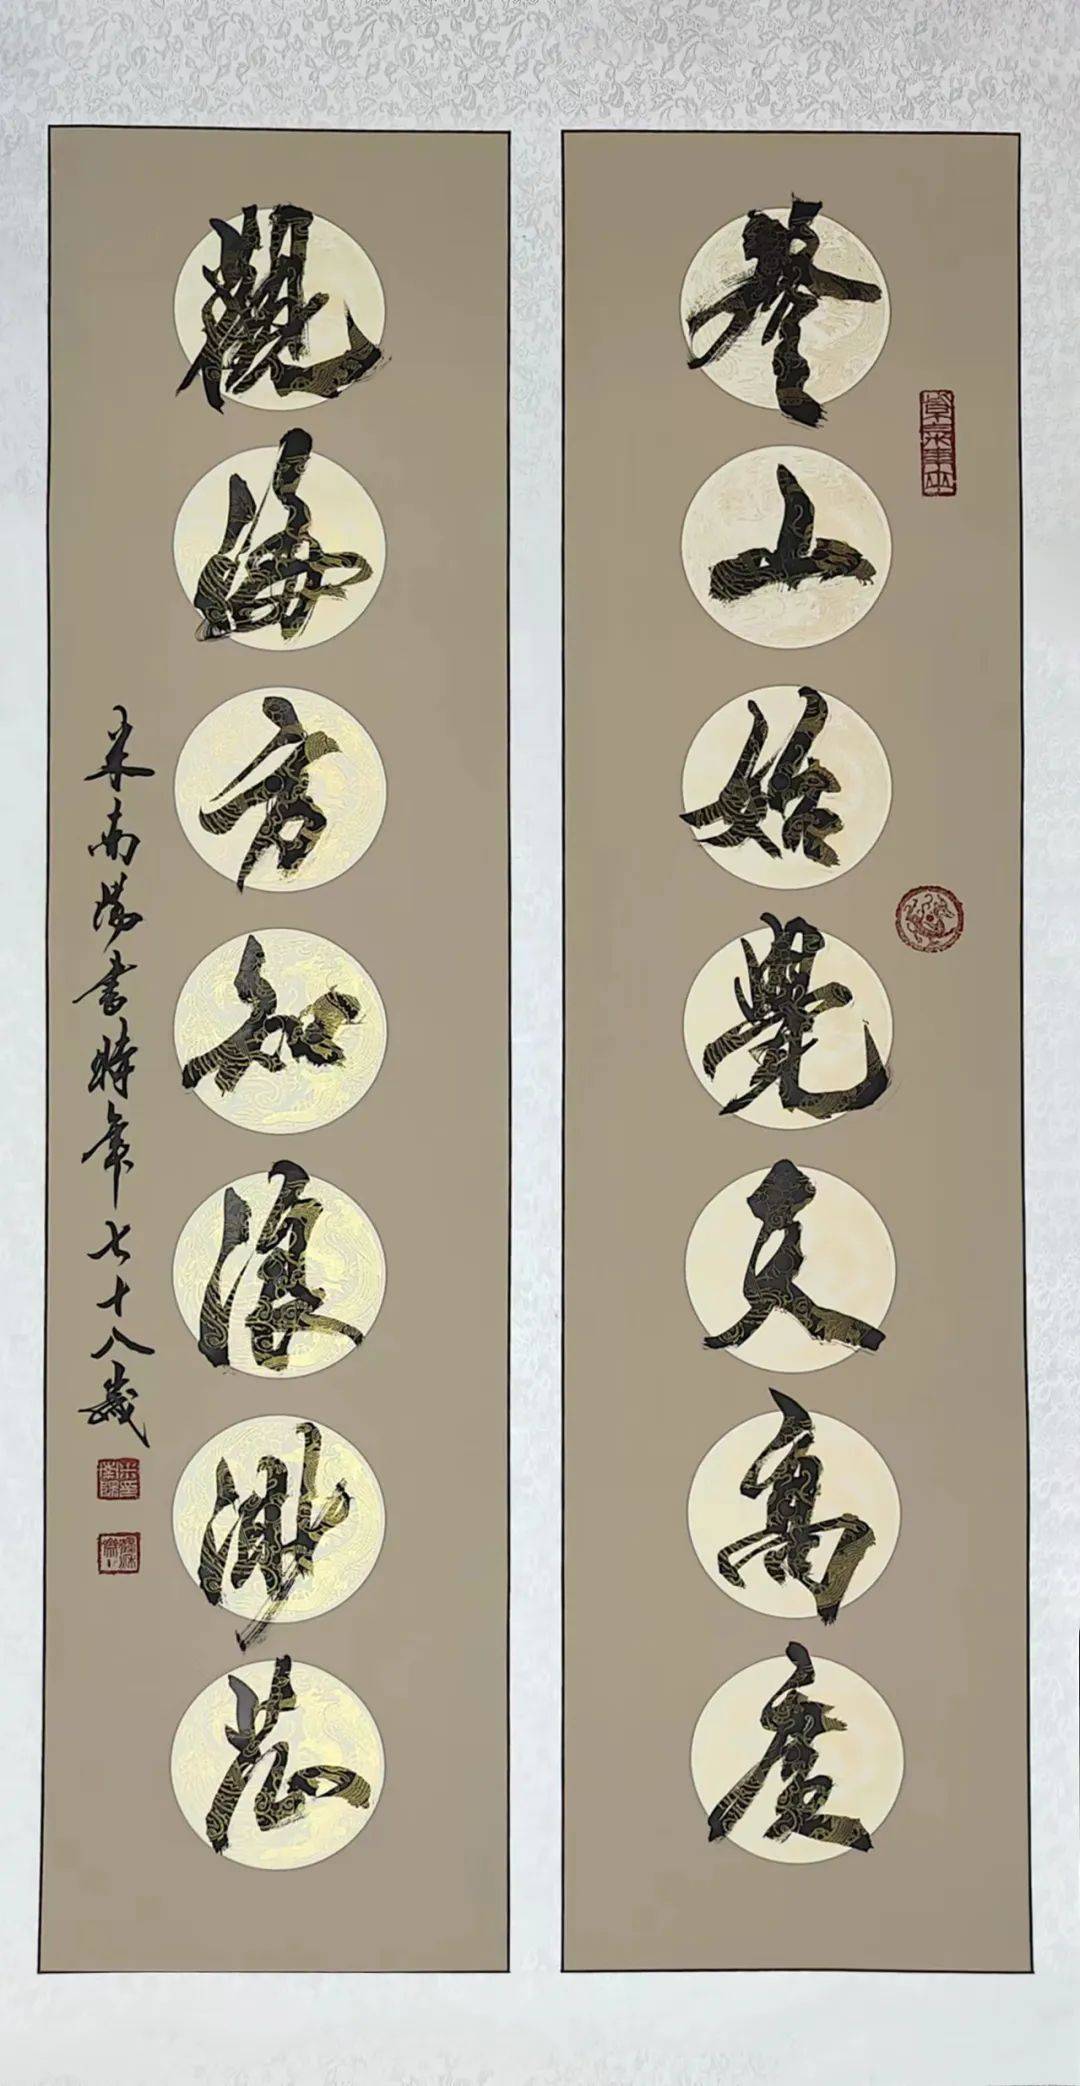 登山始覺天高廣
觀海方知浪渺茫
米南陽書時年七十八歲